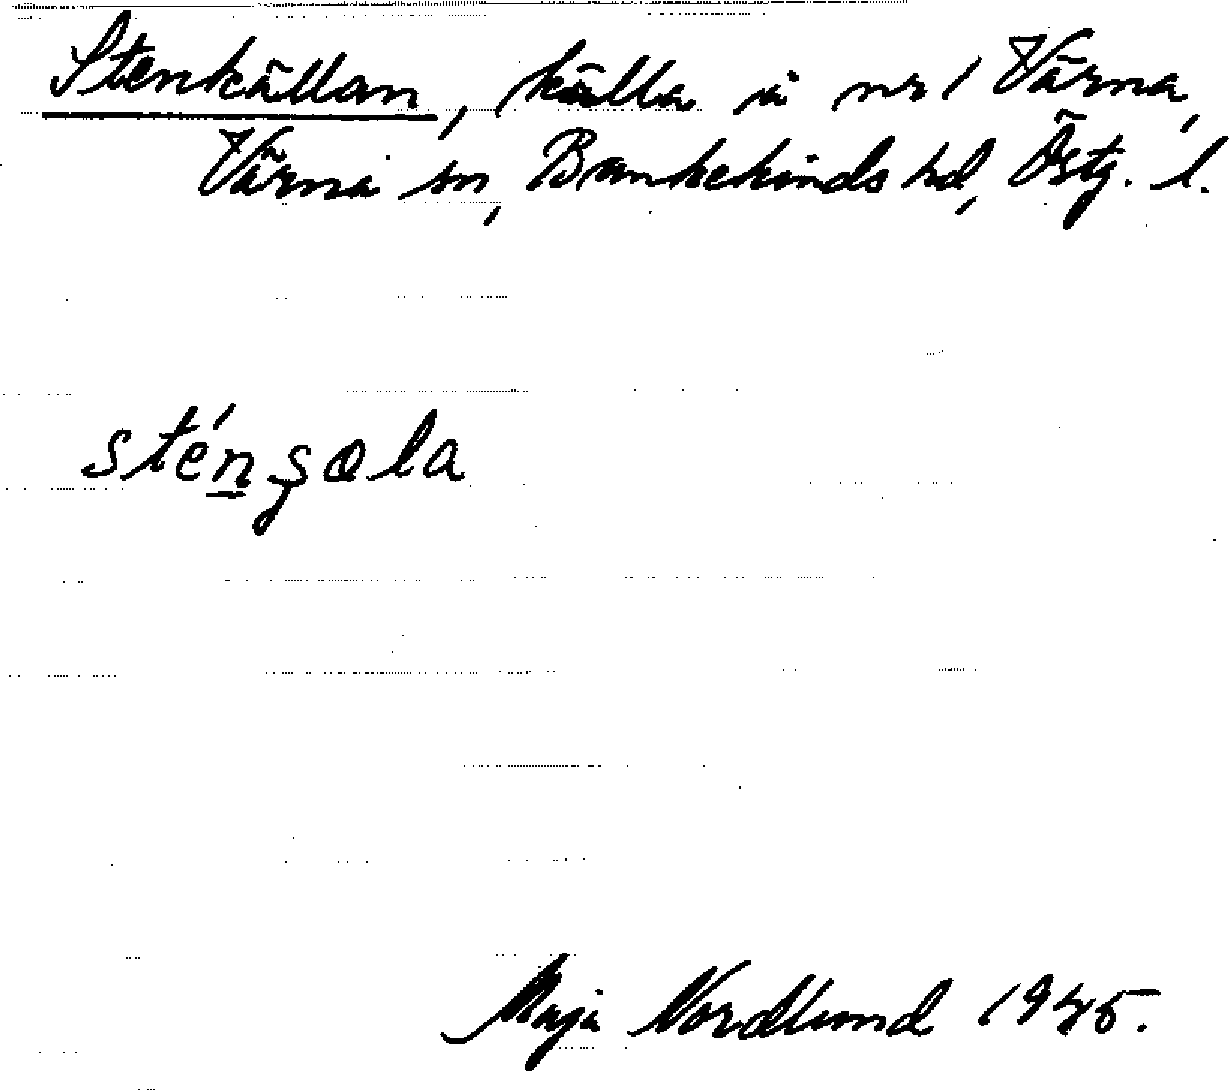 Stenkällan, källa å nr 1 Värna,
Värna sn, Bankekinds hd, Östg. l.
sténşola
Maja Nordlund 1945.